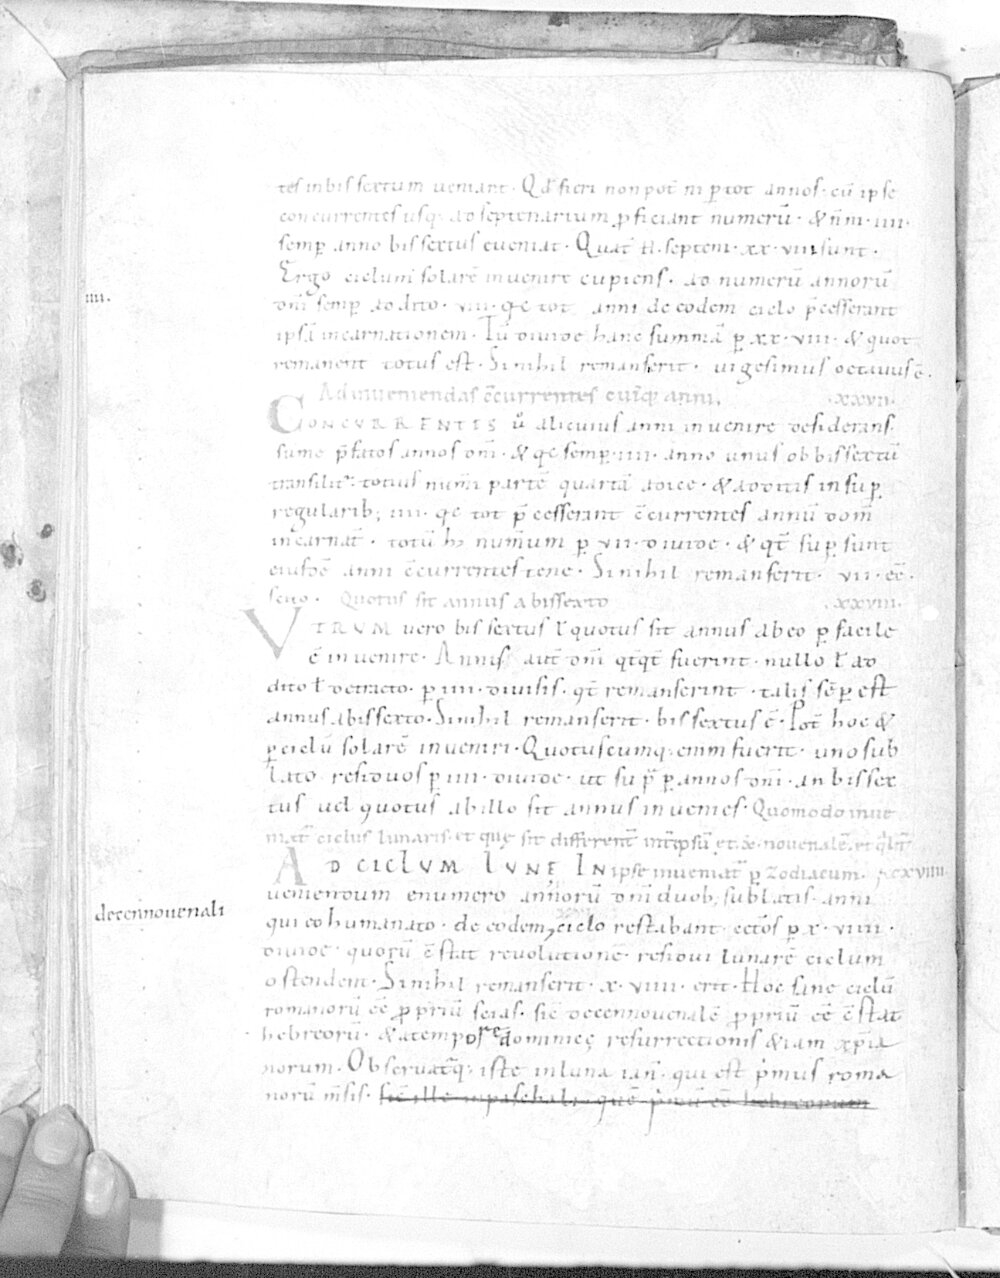 tes in bissextum veniant. Qd̄ fieri non pot̄ ni p̱ tot annos. cū ipse
concurrentes usq; ad septenarium p̱ficiant numerū. & n̄m. iiii.
semp̱ anno bissextus eveniat. Quat̄ ħ. septem. xx. viii sunt.
Ergo ciclum solarē invenire cupiens. ad numerū annorū
dn̄i semp̱ addito. viii. qe tot anni de eodem ciclo p̄cesserant
ipsā incarnationem. Tū divide hanc summā p̱ xx. viii. & quot
remanent totus est. Si nihil remanserit. vigesimus octavus ē.
Ad inveniendas c̄currentes cuiq; anni. .xxvii.
CONCURRENTES ů alicuius anni invenire desiderans.
sume p̄fatos annos dn̄i. & qe semp̱. iiii. anno unus ob bissextū
transilit̄. totius num̄i partē quartā adice. & additis insup̱
regularib; iiii. qe tot p̄cesserant c̄currentes annū dom̄
incarnat̄. totū h̄ num̄um p̱ vii. divide. & qt̄ sup̱sunt
eiusdē anni c̄currentes tene. Si nihil remanserit. vii. eē.
scito. Quotus sit annus a bissexto .xxviii.
VTRVM vero bissextus ł quotus sit annus ab eo p̱facile
ē invenire. Annis aut̄ dn̄i qt̄qt̄ fuerint. nullo ł ad
dito ł detracto. p̱ iiii. divisis. qt̄ remanserint. talis sēp̱ est
annus a bissexto. Si nihil remanserit. bissextus ē. Pot̄ hoc &
p̱ ciclū solarē inveniri. Quotuscumq; enim fuerit. uno sub
lato residuos p̱ iiii. divide. ut sup̄ p̱ annos dn̄i. an bissex
tus vel quotus ab illo sit annus invenies. Quomodo inve
niat̄ ciclus lunaris. et quę sit different̄ int̄ ipsū et x. novenalē. et qlit̄
AD CICLVM LVNE IN ipse inveniat̄ p̱ zodiacum. xxviiii.
veniendum e numero annorū dn̄i duob; sublatis. anni
decennovenali
qui eo humanato. de eodem ciclo restabant. cetōs p̱ x. viiii.
divide. quorū c̄stat revolutione. residui lunarē ciclum
ostendent. Si nihil remanserit. x. viiii. erit. Hoc sane ciclū
romanorū eē p̱priū scias. sic̄ decennovenalē p̱priū eē c̄stat
hebreorū. & a tempore dominicę resurrectionis & iam xp̄ia
norum. Observat̄q; iste in luna ian̄. qui est p̓mus roma
norū m̄sis. sic̄ ille in paschali. quē p̓mū eē hebreorum
iiii.